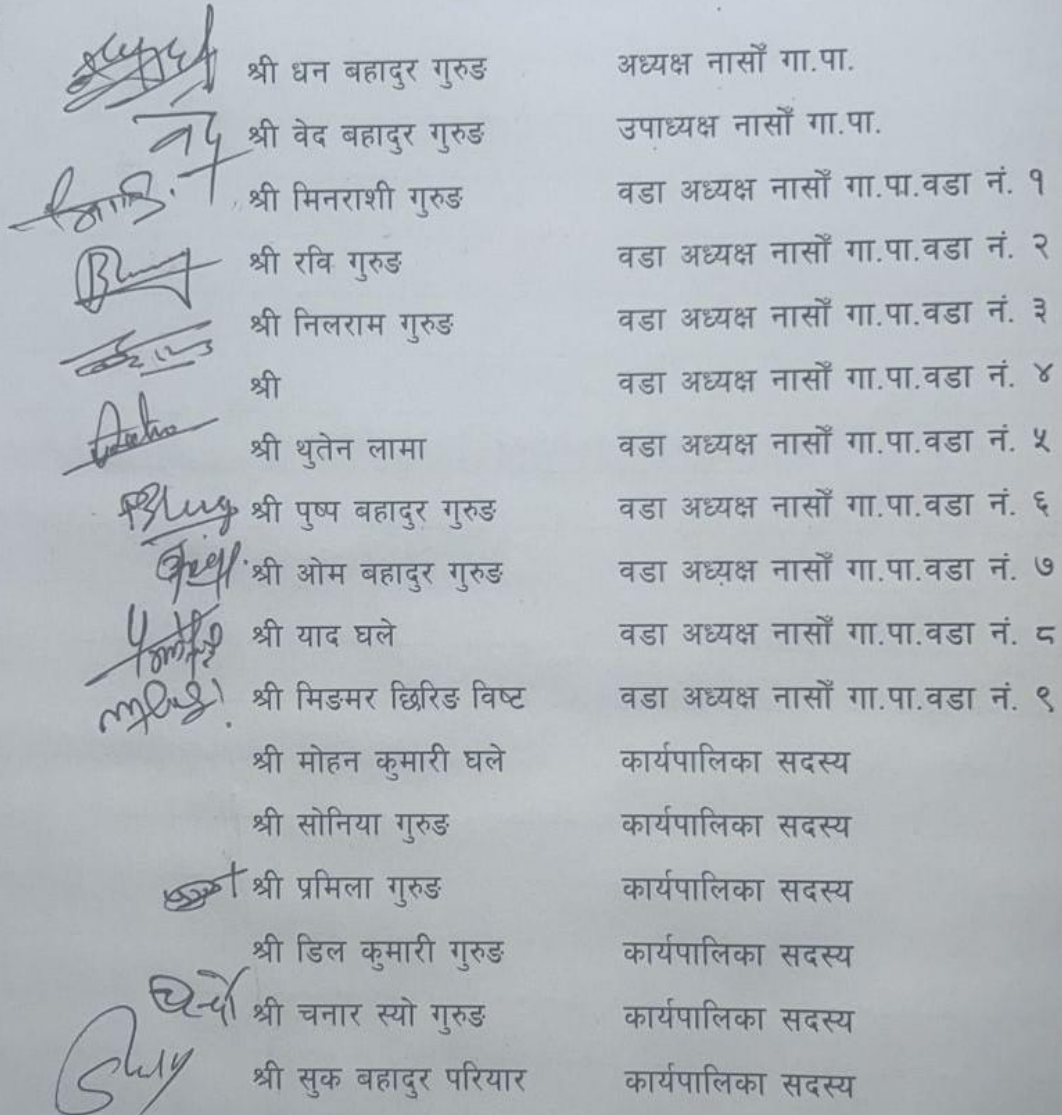 श्री धन बहादुर गुरुङ अध्यक्ष नासोँ गा.पा.
श्री वेद बहादुर गुरुङ उपाध्यक्ष नासोँ गा.पा.
श्री मिनराशी गुरुङ वडा अध्यक्ष नासोँ गा.पा.वडा नं. १
श्री रवि गुरुङ वडा अध्यक्ष नासोँ गा.पा.वडा नं. २
श्री निलराम गुरुङ वडा अध्यक्ष नासोँ गा.पा.वडा नं. ३
श्री वडा अध्यक्ष नासोँ गा.पा.वडा नं. ४
श्री थुतेन लामा वडा अध्यक्ष नासोँ गा.पा.वडा नं. ५
श्री पुष्प बहादुर गुरुङ वडा अध्यक्ष नासोँ गा.पा.वडा नं. ६
श्री ओम बहादुर गुरुङ वडा अध्यक्ष नासोँ गा.पा.वडा नं. ७
श्री याद घले वडा अध्यक्ष नासोँ गा.पा.वडा नं. ८
श्री मिङमर छिरिङ विष्ट वडा अध्यक्ष नासोँ गा.पा.वडा नं. ९
श्री मोहन कुमारी घले कार्यपालिका सदस्य
श्री सोनिया गुरुङ कार्यपालिका सदस्य
श्री प्रमिला गुरुङ कार्यपालिका सदस्य
श्री डिल कुमारी गुरुङ कार्यपालिका सदस्य
श्री चनार स्यो गुरुङ कार्यपालिका सदस्य
श्री सुक बहादुर परियार कार्यपालिका सदस्य